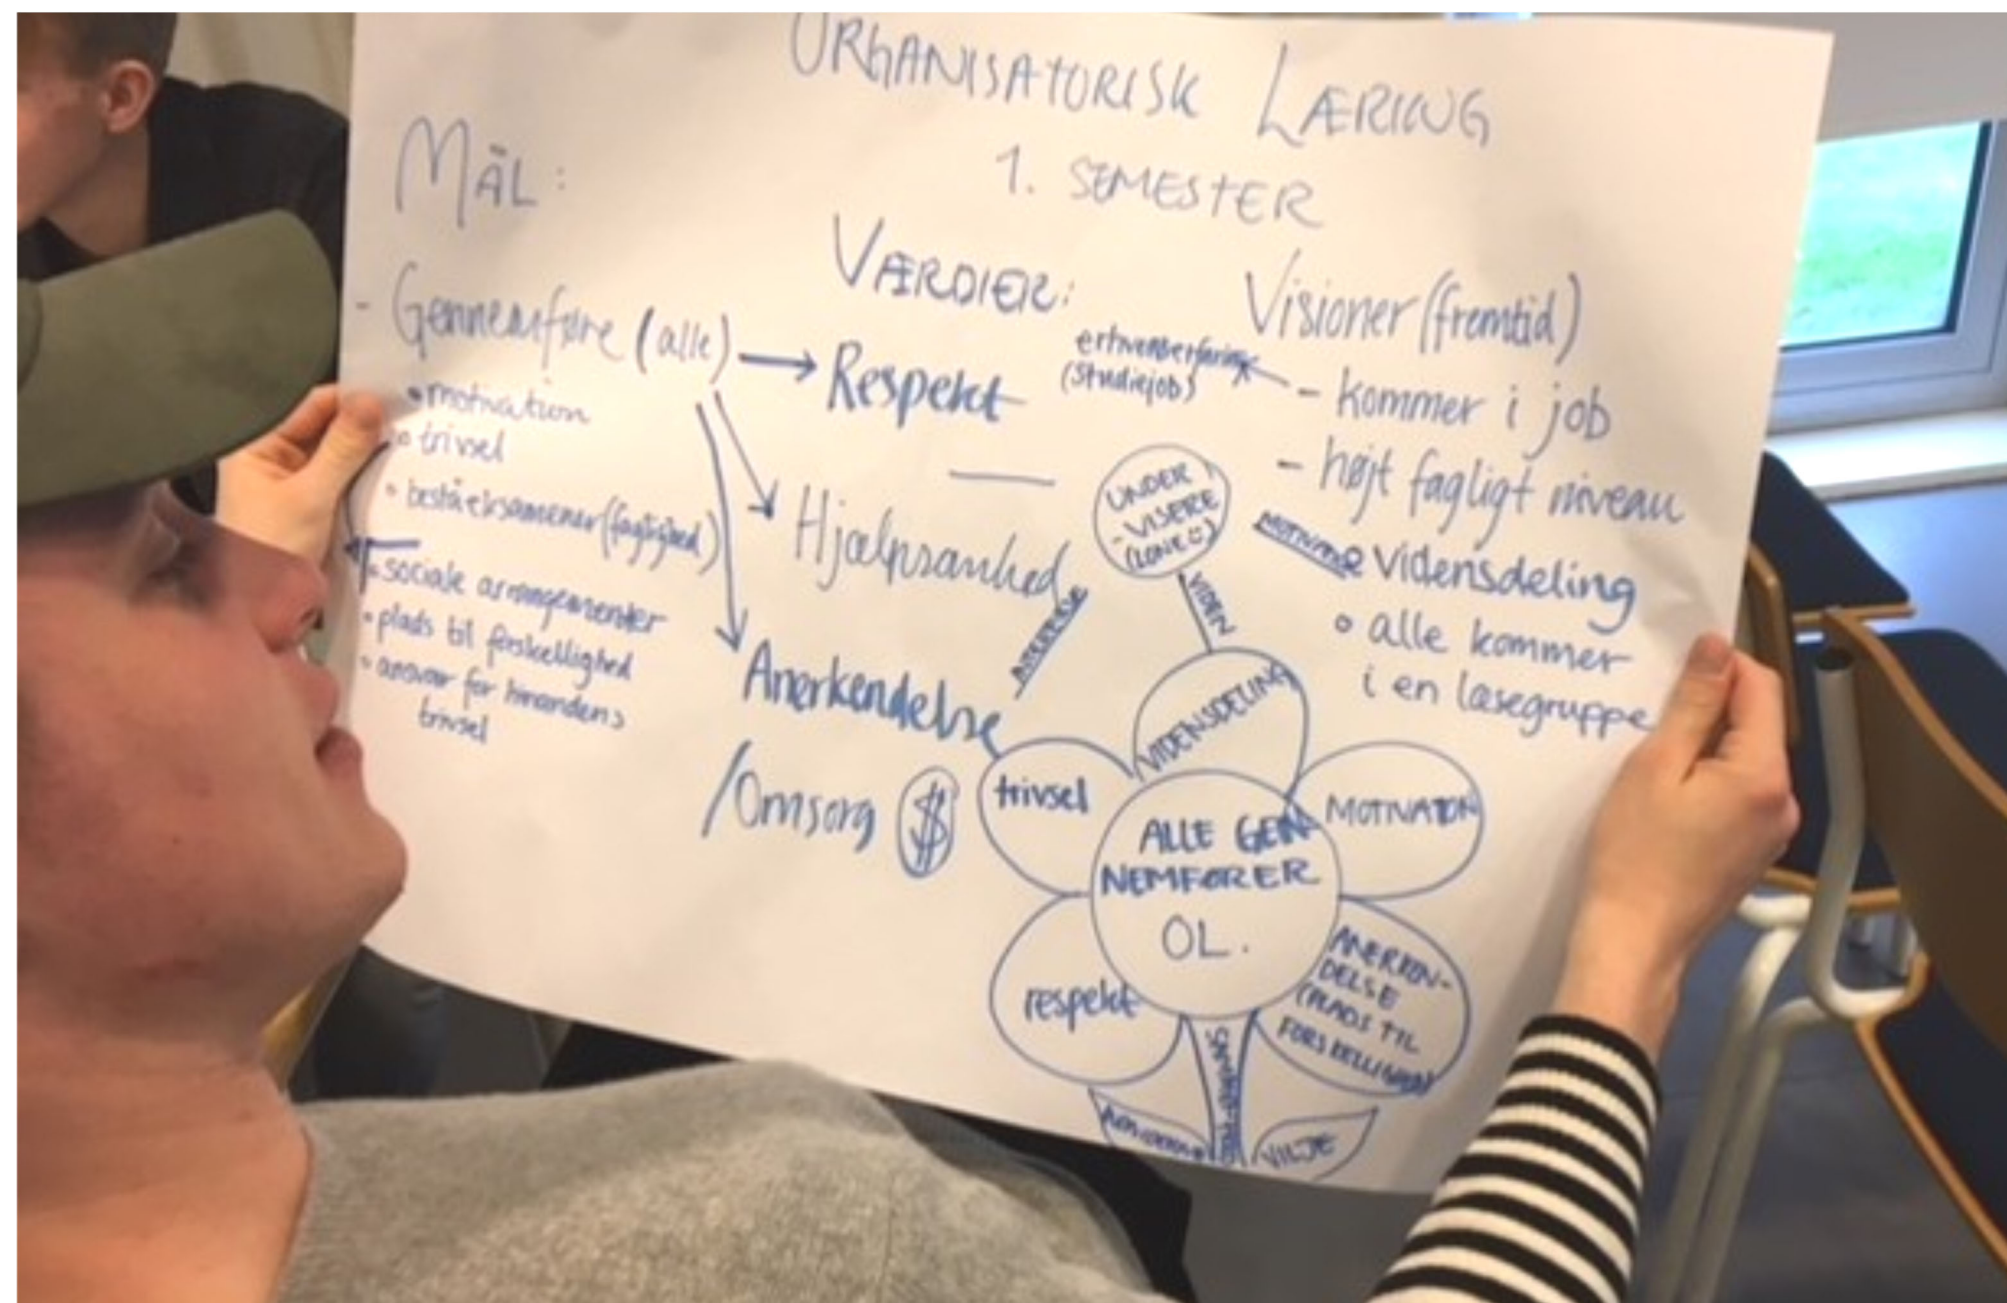 ORGANISATORISK LÆRING
1. SEMESTER
MÅL:
- Gennemføre (alle)
• motivation
• trivsel
• bestå eksamener (faglighed)
• sociale arrangementer
• plads til forskellighed
• ansvar for hinandens
trivsel
VÆRDIER:
Respekt
Hjælpsomhed
Anerkendelse
/Omsorg $
Visioner (fremtid)
erhvervserfaring
(Studiejob)
- kommer i job
- højt fagligt niveau
• Vidensdeling
• alle kommer
i en læsegruppe
UNDER
-VISERE
(LONE :)
VIDEN
VIDENSDELING
trivsel
MOTIVATION
ALLE GEN
NEMFØRER
OL.
respekt
ANERKEN-
DELSE
(PLADS TIL
FORSKELLIGHED)
VILJE